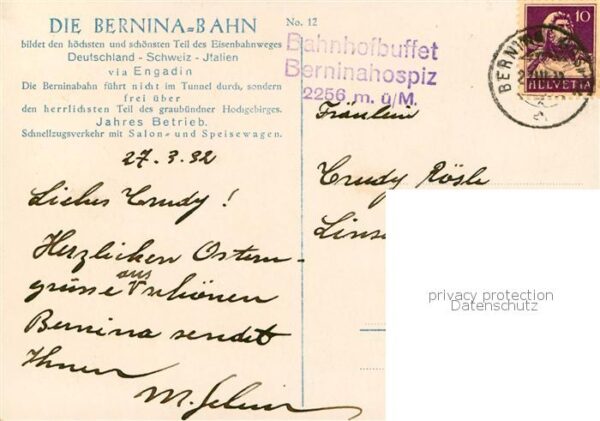 DIE BERNINA=BAHN
No. 12
bildet den höchsten und schönsten Teil des Eisenbahnweges
Deutschland - Schweiz - Jtalien
via Engadin
Die Berninabahn führt nicht im Tunnel durch, sondern
frei über
den herrlichsten Teil des graubündner Hochgebirges.
Jahres Betrieb.
Schnellzugsverkehr mit Salon- und Speisewagen.
Bahnhofbuffet
Berninahospiz
2256 m. ü/M.
10
HELVETIA
BERNINA
27.3.32
Liebes Trudy!
Herzlichen Oster-
grüsse aus schönen
Bernina sendet
Ihnen
M.
Fräulein
Trudy Rösle
privacy protection
Datenschutz